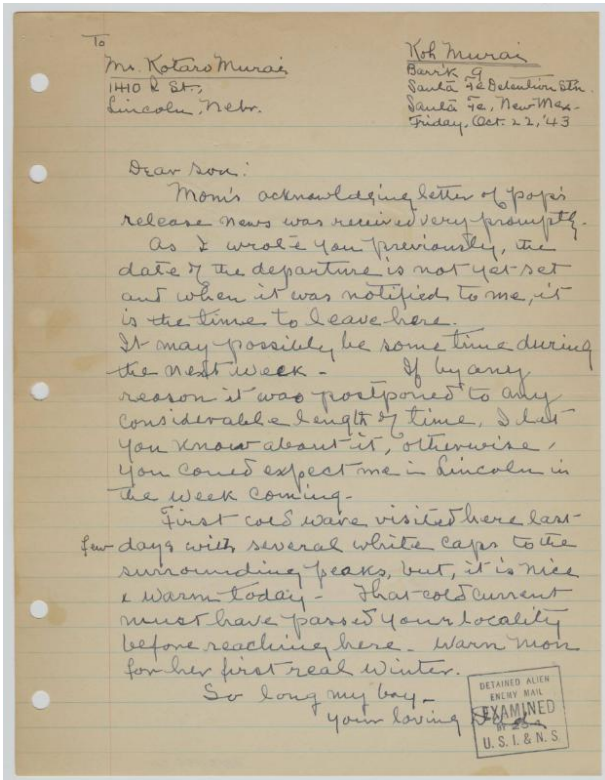 To
Mr. Kotaro Murai
1410 R St.,
Lincoln, Nebr.
Koh Murai
Barr'k 9
Santa Fe Detention Stn.
Santa Fe, New Mex.
Friday, Oct. 22, '43
Dear Son:
Mom's acknowledging letter of pop's
release news was received very promptly.
As I wrote you previously, the
date of the departure is not yet set
and when it was notified to me, it
is the time to leave here.
It may possibly be some time during
the next week - If by any
reason it was postponed to any
considerable length of time, I let
you know about it, otherwise,
you could expect me in Lincoln in
the week coming.
First cold wave visited here last
few days with several white caps to the
surrounding peaks, but, it is nice
& warm today - That cold current
must have passed your locality
before reaching here. Warn mom
for her first real winter.
So long my boy -
Your loving
DETAINED ALIEN
ENEMY MAIL
EXAMINED
U. S. I. & N. S.